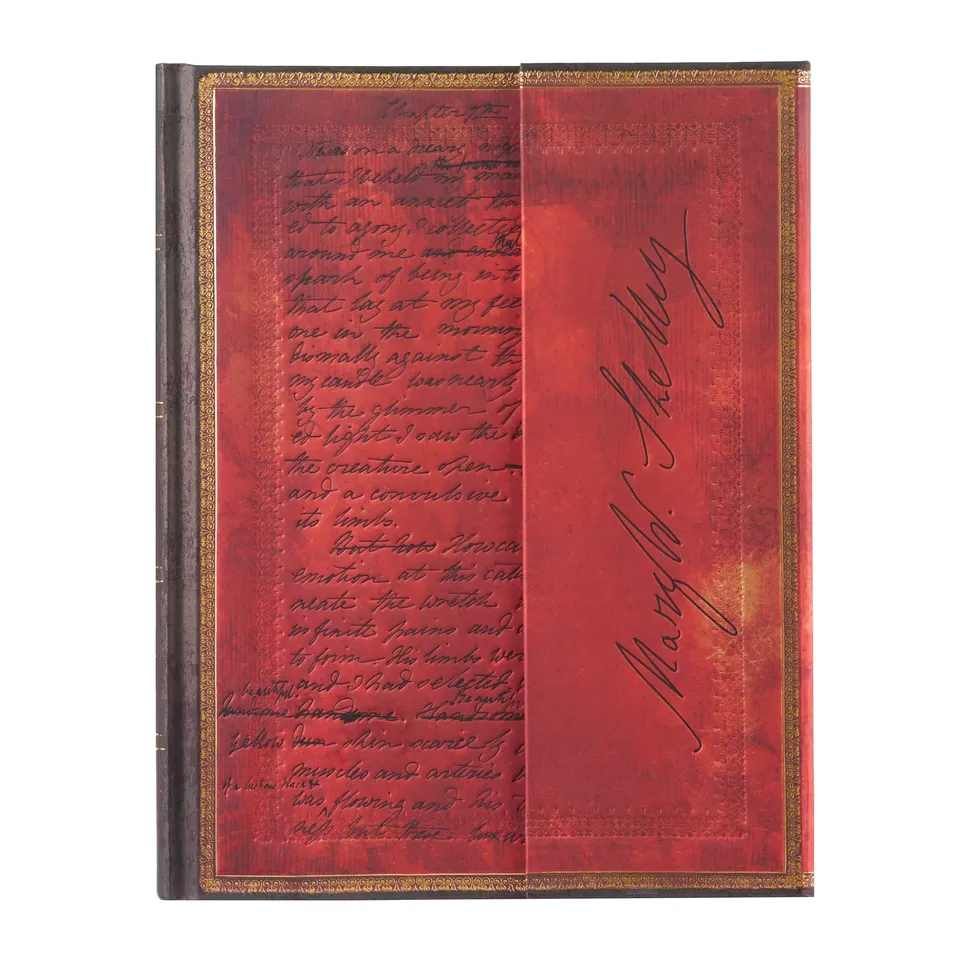 Chapter 7th
It was on a dreary nig
that I beheld my man
with an anxiety tha
ed to agony, I collected
that
around me and endea
spark of being into
that lay at my fee
one in the mornin
dismally against th
my candle was nearly
by the glimmer of
ed light I saw the
the creature open
and a convulsive
its limbs.
But how How ca
emotion at this cat
neate the wretch
infinite pains and
to form. His limbs wer
and I had selected
beautiful.
handsome handsome. Handsome
yellow dun skin scarcely
muscles and arteries
of a lustrous black &
was flowing and his
ness but these luxu
Mary W. Shelley